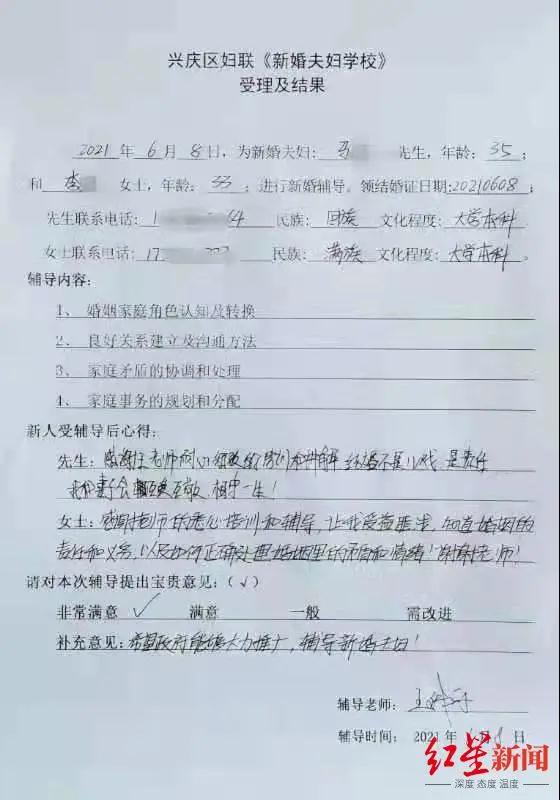 兴庆区妇联《新婚夫妇学校》
受理及结果
2021 年 6 月 8 日，为新婚夫妇：马 先生，年龄：35；
和 李 女士，年龄：33；进行新婚辅导。领结婚证日期:20210608；
先生联系电话：1 4 民族：回族 文化程度：大学本科
女士联系电话：17 民族：满族 文化程度：大学本科。
辅导内容：
1、 婚姻家庭角色认知及转换
2、 良好关系建立及沟通方法
3、 家庭矛盾的协调和处理
4、 家庭事务的规划和分配
新人受辅导后心得：
先生：感谢王老师耐心细致的 和讲解 结婚不是儿戏，是责任
我和妻子会互敬，相守一生！
女士：感谢老师的悉心培训和辅导，让我受益匪浅，知道婚姻的
责任和义务，以及如何正确处理婚姻里的矛盾和情绪！谢谢老师！
请对本次辅导提出宝贵意见：（√）
非常满意 √ 满意 一般 需改进
补充意见：希望政府能够大力推广，辅导新婚夫妇！
辅导老师：王
辅导时间： 2021 年 6 月 8 日
红星新闻
深度 态度 温度